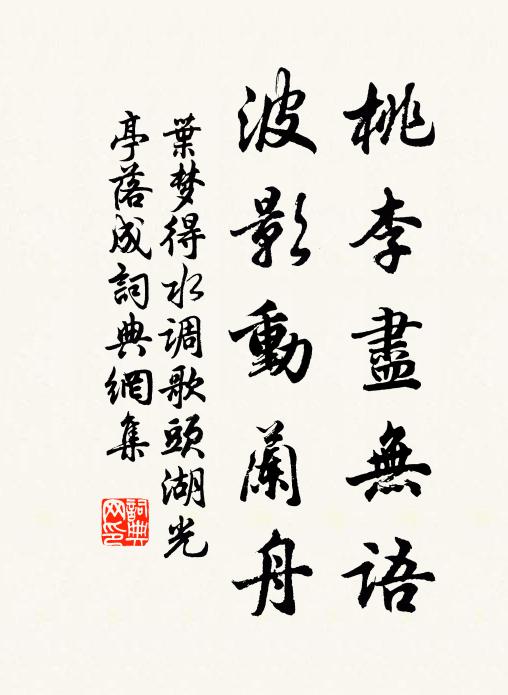 桃李盡無語
波影動蘭舟
葉梦得水调歌頭湖光
亭落成詞典網集
詞典网印